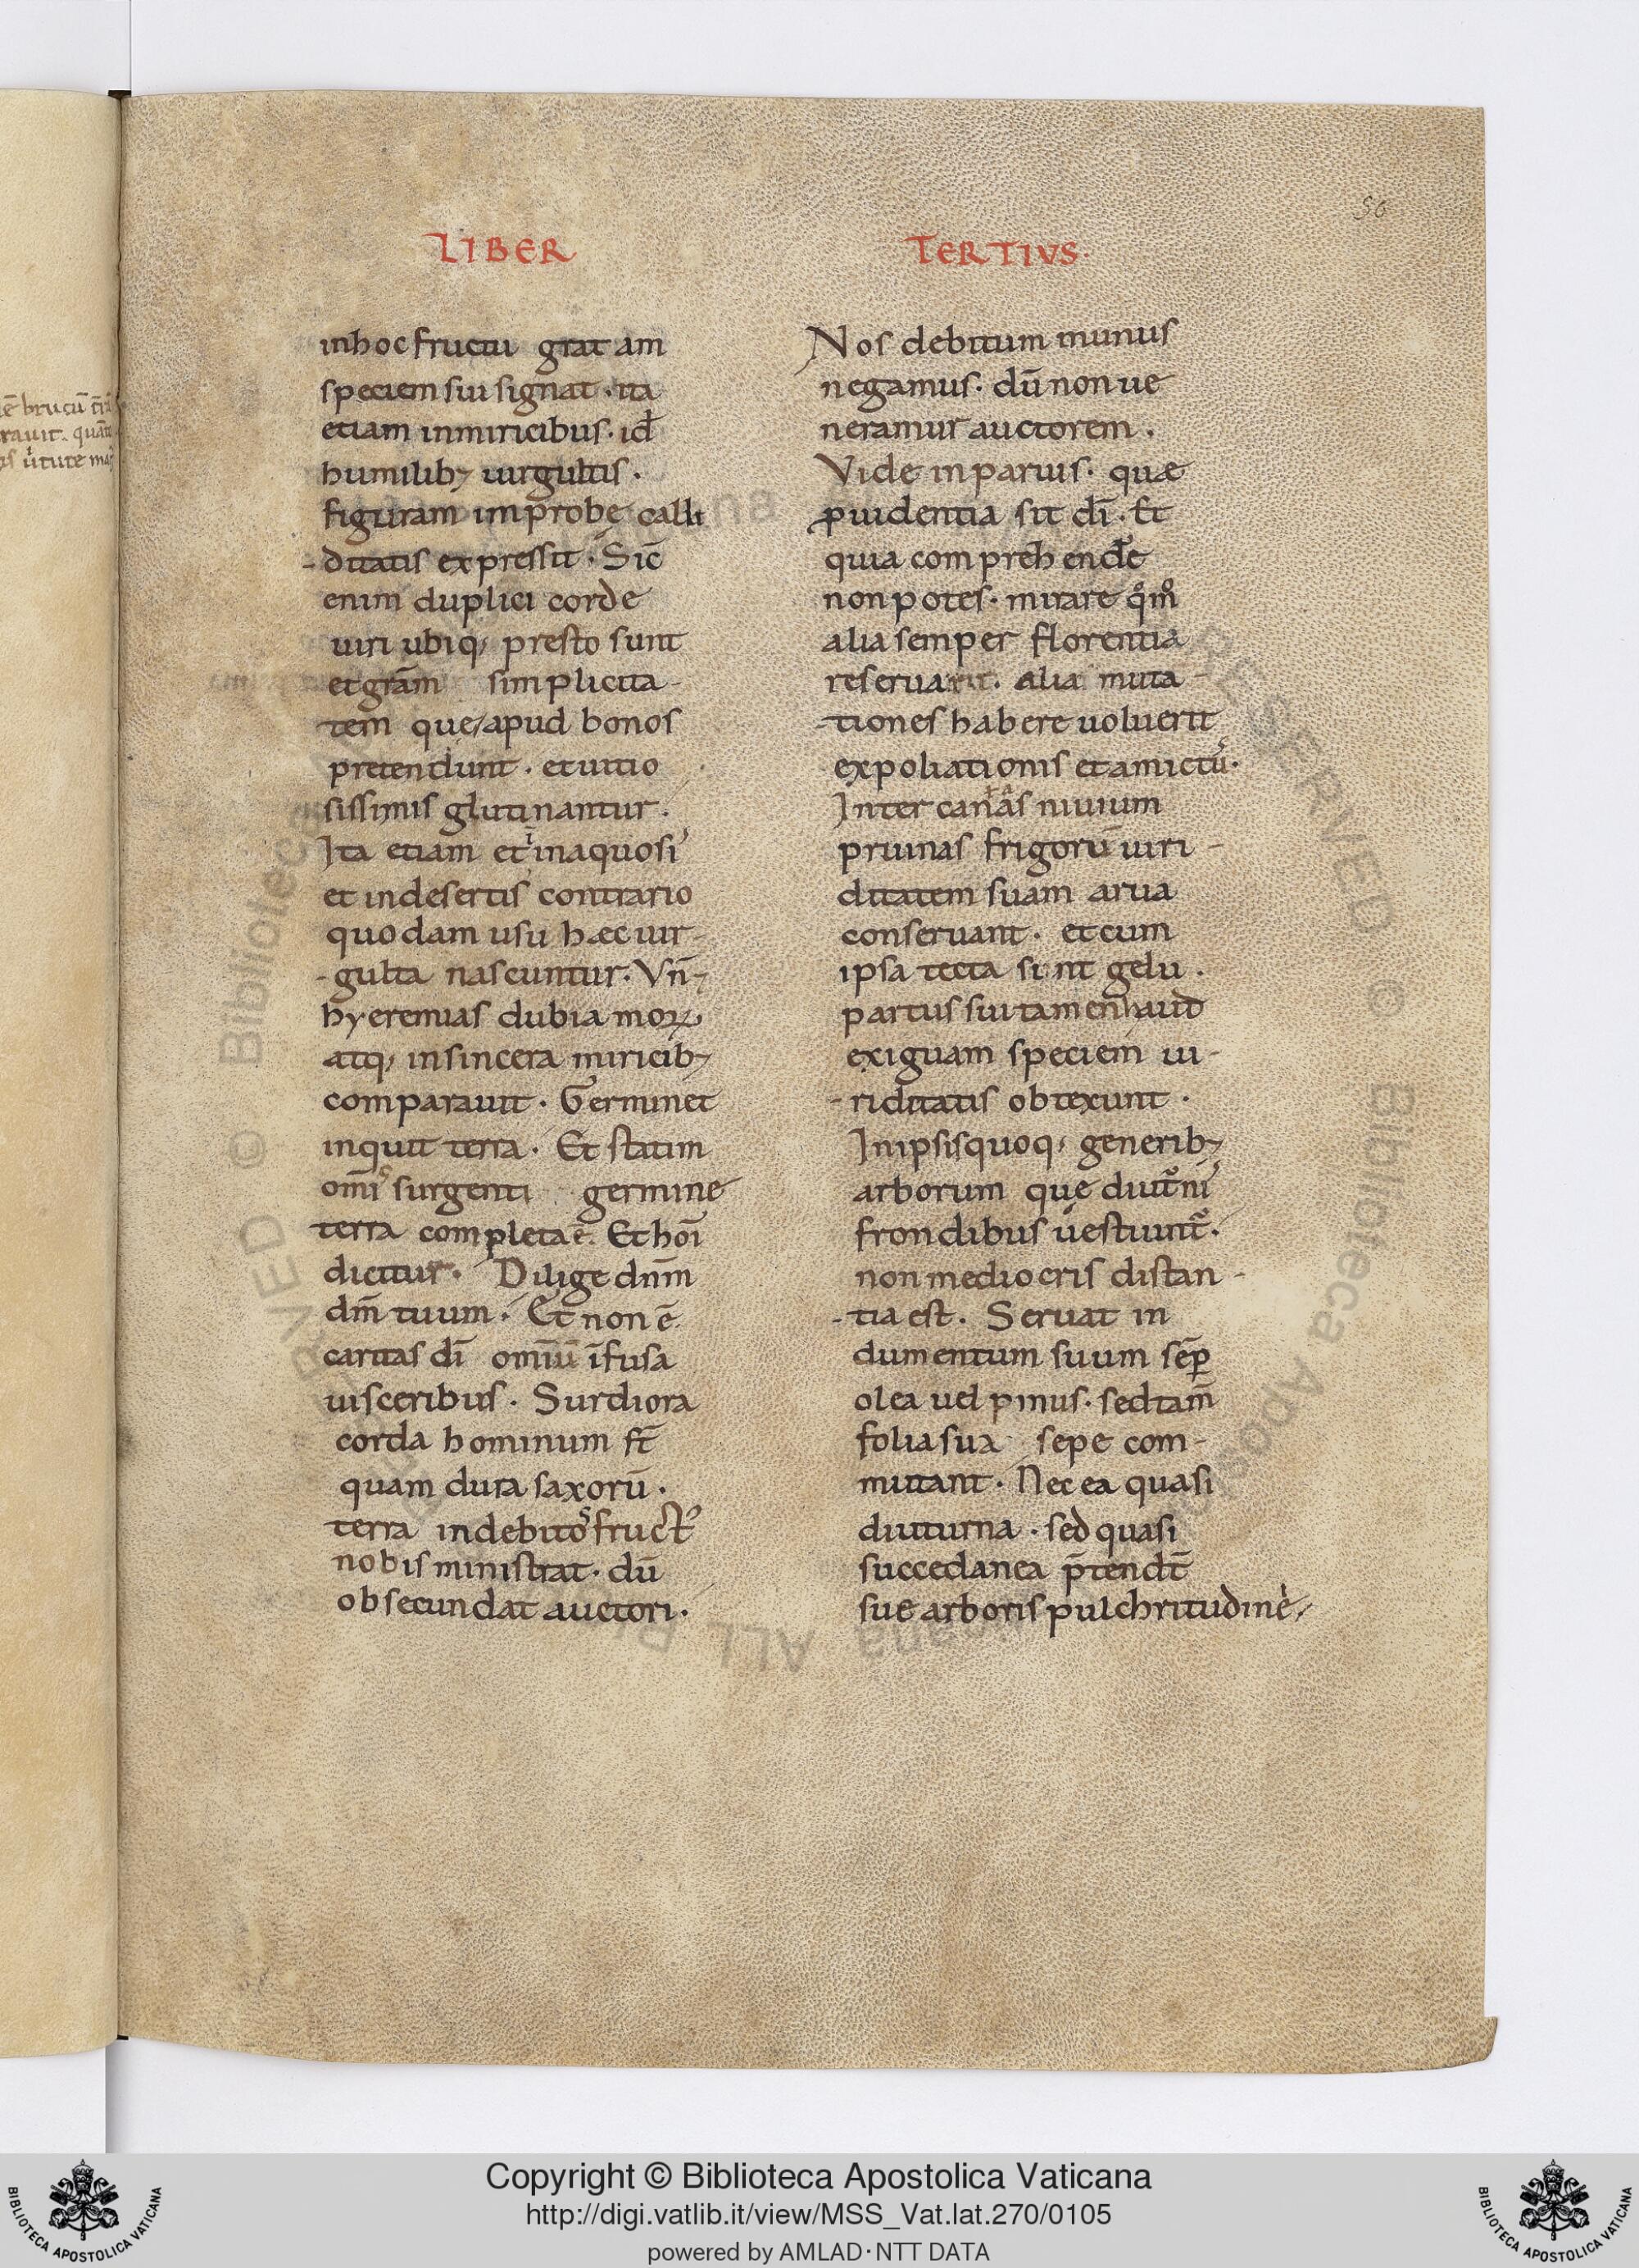 50
LIBER
TERTIVS·
inhoc fructu grat am
speciem sui signat · ita
etiam inmiricibus · id̄
humilibꝫ uirgultis ·
figuram improbę calli
-ditatis expressit · Sic̄
enim duplici corde
uiri ubiqꝫ presto sunt
et grām simplicita-
tem quę apud bonos
pretendunt · et uitio
sissimis glutinantur ·
Ita etiam et inaquosis
et indesertis contrario
quodam usu hæc uir-
-gulta nascuntur · Vn̄
hyeremias dubia moꝝ
atqꝫ insincera miricibꝫ
comparauit · Germinet
inquit terra · Et statim
omīs surgenti germine
terra completa ē · Et hoī
dicitur · Dilige dn̄m
dm̄ tuum · Et non ē
caritas dī omīū īfusa
uisceribus · Surdiora
corda hominum st̄
quam dura saxorū ·
terra indebitos fruct᾽
nobis ministrat · dū
obsecundat auctori ·
Nos debitum munus
negamus · dū non ue
neramur auctorem ·
Vide inparuis · quæ
ꝓuidentia sit dī · Et
quia comprehendere
non potes · mirare qͦmͦ
alia semper florentia
reseruarit · alia muta-
-tiones habere uoluerit
expoliationis et amictus ·
Inter canas niuium
pruinas frigorū uiri-
ditatem suam arua
conseruant · et cum
ipsa tecta sint gelu ·
partus sui tamen haud
exiguam speciem ui-
-riditatis obtexunt ·
Inipsis quoqꝫ generibꝫ
arborum quę diut᷑nis
frondibus uestiunt᷑ ·
non mediocris distan-
-tia est · Seruat in
dumentum suum sēꝑ
olea uel pinus · sed tam̄
folia sua sepe com-
mutant · Nec ea quasi
diuturna · sed quasi
succedanea p̄tendt̄
sue arboris pulchritudine
Copyright © Biblioteca Apostolica Vaticana
http://digi.vatlib.it/view/MSS_Vat.lat.270/0105
powered by AMLAD·NTT DATA
BIBLIOTECA APOSTOLICA VATICANA
BIBLIOTECA APOSTOLICA VATICANA